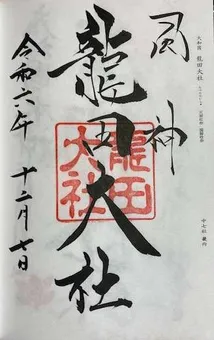 大和国 龍田大社
風神
龍田大社
龍田大社
令和六年 十二月七日